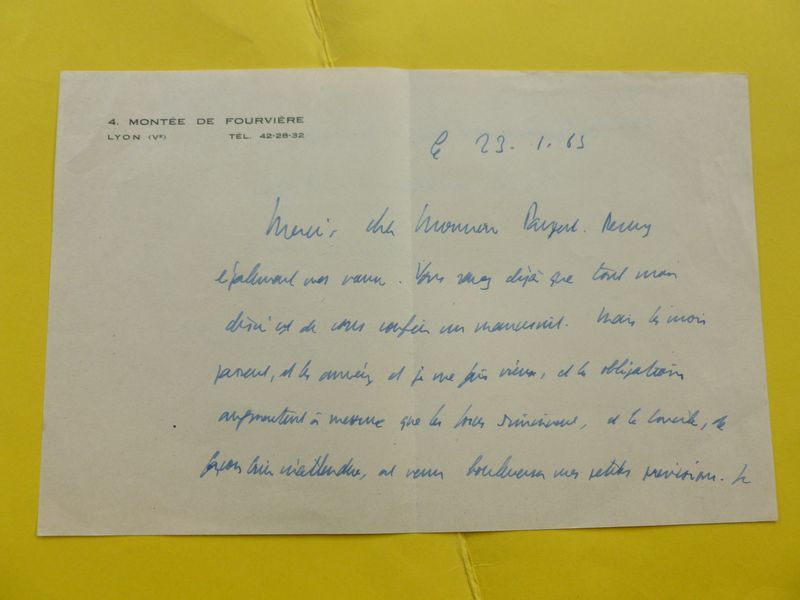 4. MONTÉE DE FOURVIÈRE
LYON (Vᵉ) TÉL. 42-28-32
le 23. 1. 63
Merci, cher Monsieur
également mes vœux. Vous savez déjà que tout mon
désir est de vous confier un manuscrit. Mais les mois
passent, et les années, et je me fais vieux, et les obligations
augmentent à mesure que les forces diminuent, et le Concile, de
façon bien inattendue, est venu bouleverser mes petites prévisions. Je